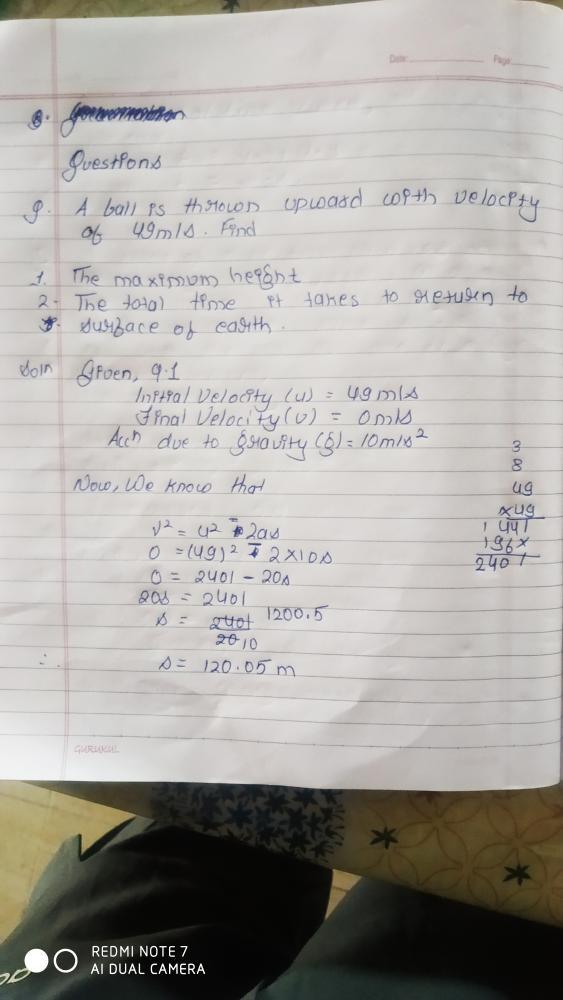 Date: Page:
Questions
Q. A ball is thrown upward with velocity
of 49m/s. Find
1. The maximum height
2. The total time it takes to return to
surface of earth.
Soln Given, q.1
Initial Velocity (u) = 49m/s
Final Velocity (v) = 0m/s
Accn due to gravity (g) = 10m/s²
3
8
Now, We know that
49
x49
v² = u² - 2as
1441
0 = (49)² - 2×10s
196x
0 = 2401 - 20s
2401
20s = 2401
s = 2401 1200.5
20 10
∴ s = 120.05 m
GURUKUL
REDMI NOTE 7
AI DUAL CAMERA